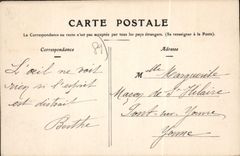 CARTE POSTALE
La Correspondance au recto n'est pas acceptée par tous les pays étrangers. (Se renseigner à la Poste).
Correspondance
Adresse
L'œil ne voit
rien si l'esprit
est distrait
Berthe
Mlle Marguerite
Maçon de St Hilaire
Pont sur Yonne
Yonne